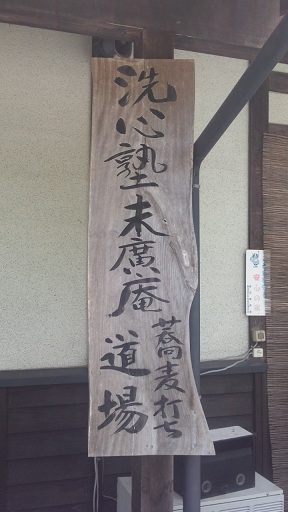 洗心塾末廣庵
蕎麦打ち
道場